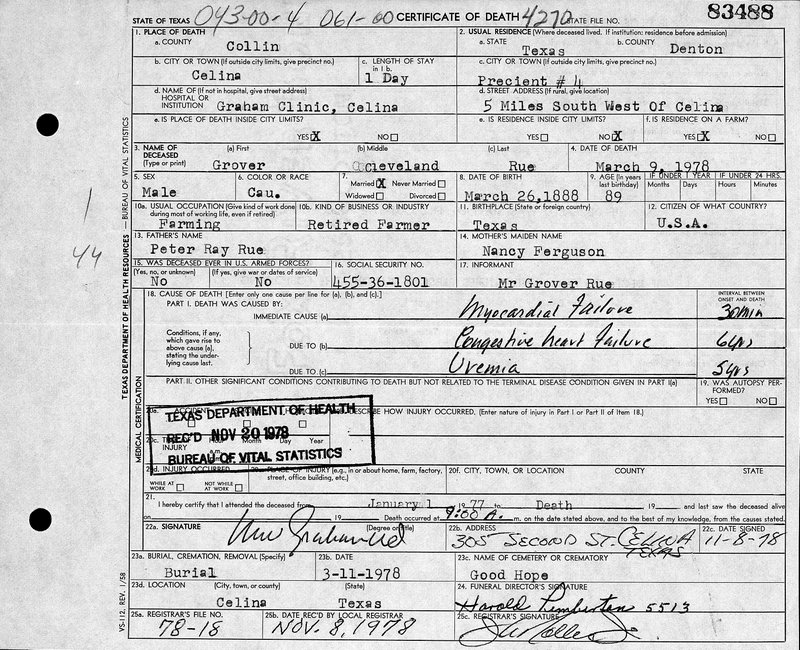 STATE OF TEXAS 043-00-4 061-00 CERTIFICATE OF DEATH 4270 STATE FILE NO. 83488
1. PLACE OF DEATH
a. COUNTY Collin
2. USUAL RESIDENCE (Where deceased lived. If institution: residence before admission)
a. STATE Texas b. COUNTY Denton
b. CITY OR TOWN (If outside city limits, give precinct no.) Celina
c. LENGTH OF STAY in 1 b. 1 Day
c. CITY OR TOWN (If outside city limits, give precinct no.) Precient # 4
d. NAME OF (If not in hospital, give street address) HOSPITAL OR INSTITUTION Graham Clinic, Celina
d. STREET ADDRESS (If rural, give location) 5 Miles South West Of Celina
e. IS PLACE OF DEATH INSIDE CITY LIMITS? YES X NO
e. IS RESIDENCE INSIDE CITY LIMITS? YES NO X
f. IS RESIDENCE ON A FARM? YES X NO
3. NAME OF DECEASED (Type or print) (a) First Grover (b) Middle Cleveland (c) Last Rue
4. DATE OF DEATH March 9, 1978
5. SEX Male
6. COLOR OR RACE Cau.
7. Married X Never Married Widowed Divorced
8. DATE OF BIRTH March 26,1888
9. AGE (In years last birthday) 89
IF UNDER 1 YEAR Months Days
IF UNDER 24 HRS. Hours Minutes
10a. USUAL OCCUPATION (Give kind of work done during most of working life, even if retired) Farming
10b. KIND OF BUSINESS OR INDUSTRY Retired Farmer
11. BIRTHPLACE (State or foreign country) Texas
12. CITIZEN OF WHAT COUNTRY? U.S.A.
13. FATHER'S NAME Peter Ray Rue
14. MOTHER'S MAIDEN NAME Nancy Ferguson
15. WAS DECEASED EVER IN U.S. ARMED FORCES? (Yes, no, or unknown) No (If yes, give war or dates of service) No
16. SOCIAL SECURITY NO. 455-36-1801
17. INFORMANT Mr Grover Rue
18. CAUSE OF DEATH [Enter only one cause per line for (a), (b), and (c).]
INTERVAL BETWEEN ONSET AND DEATH
PART I. DEATH WAS CAUSED BY:
IMMEDIATE CAUSE (a) Myocardial Failure 30 min
Conditions, if any, which gave rise to above cause (a), stating the underlying cause last.
DUE TO (b) Congestive heart Failure 6 yrs
DUE TO (c) Uremia 5 yrs
PART II. OTHER SIGNIFICANT CONDITIONS CONTRIBUTING TO DEATH BUT NOT RELATED TO THE TERMINAL DISEASE CONDITION GIVEN IN PART I(a)
19. WAS AUTOPSY PERFORMED? YES NO
TEXAS DEPARTMENT OF HEALTH
REC'D NOV 20 1978
BUREAU OF VITAL STATISTICS
20a. ACCIDENT
DESCRIBE HOW INJURY OCCURRED. (Enter nature of injury in Part I or Part II of Item 18.)
20c. INJURY Month Day Year
20d. INJURY OCCURRED WHILE AT WORK NOT WHILE AT WORK
PLACE OF INJURY (e.g., in or about home, farm, factory, street, office building, etc.)
20f. CITY, TOWN, OR LOCATION COUNTY STATE
21. I hereby certify that I attended the deceased from January 1 1977 to Death 19 and last saw the deceased alive
on 19 Death occurred at 9:00 A. m. on the date stated above, and to the best of my knowledge, from the causes stated.
22a. SIGNATURE (Degree or title)
22b. ADDRESS 305 SECOND ST. CELINA TEXAS
22c. DATE SIGNED 11-8-78
23a. BURIAL, CREMATION, REMOVAL (Specify) Burial
23b. DATE 3-11-1978
23c. NAME OF CEMETERY OR CREMATORY Good Hope
23d. LOCATION (City, town, or county) Celina (State) Texas
24. FUNERAL DIRECTOR'S SIGNATURE Harold Pemberton 5513
25a. REGISTRAR'S FILE NO. 78-18
25b. DATE REC'D BY LOCAL REGISTRAR NOV. 8, 1978
25c. REGISTRAR'S SIGNATURE
TEXAS DEPARTMENT OF HEALTH RESOURCES — BUREAU OF VITAL STATISTICS
MEDICAL CERTIFICATION
VS-112, REV. 1/58
1
44